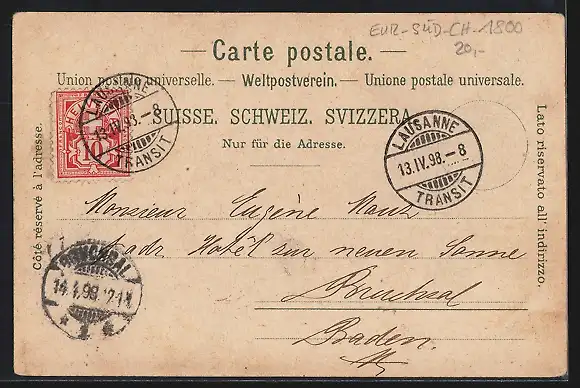 EUR-SÜD-CH-1800
20,-
Carte postale.
Union postale universelle. — Weltpostverein. — Unione postale universale.
SUISSE. SCHWEIZ. SVIZZERA.
Nur für die Adresse.
Côté réservé à l'adresse.
Lato riservato all' indirizzo.
HELVETIA
10
LAUSANNE
13.IV.98.-8
TRANSIT
LAUSANNE
13.IV.98.-8
TRANSIT
Monsieur Eugène
Hotel zur neuen Sonne
Bruchsal
Baden.
BRUCHSAL